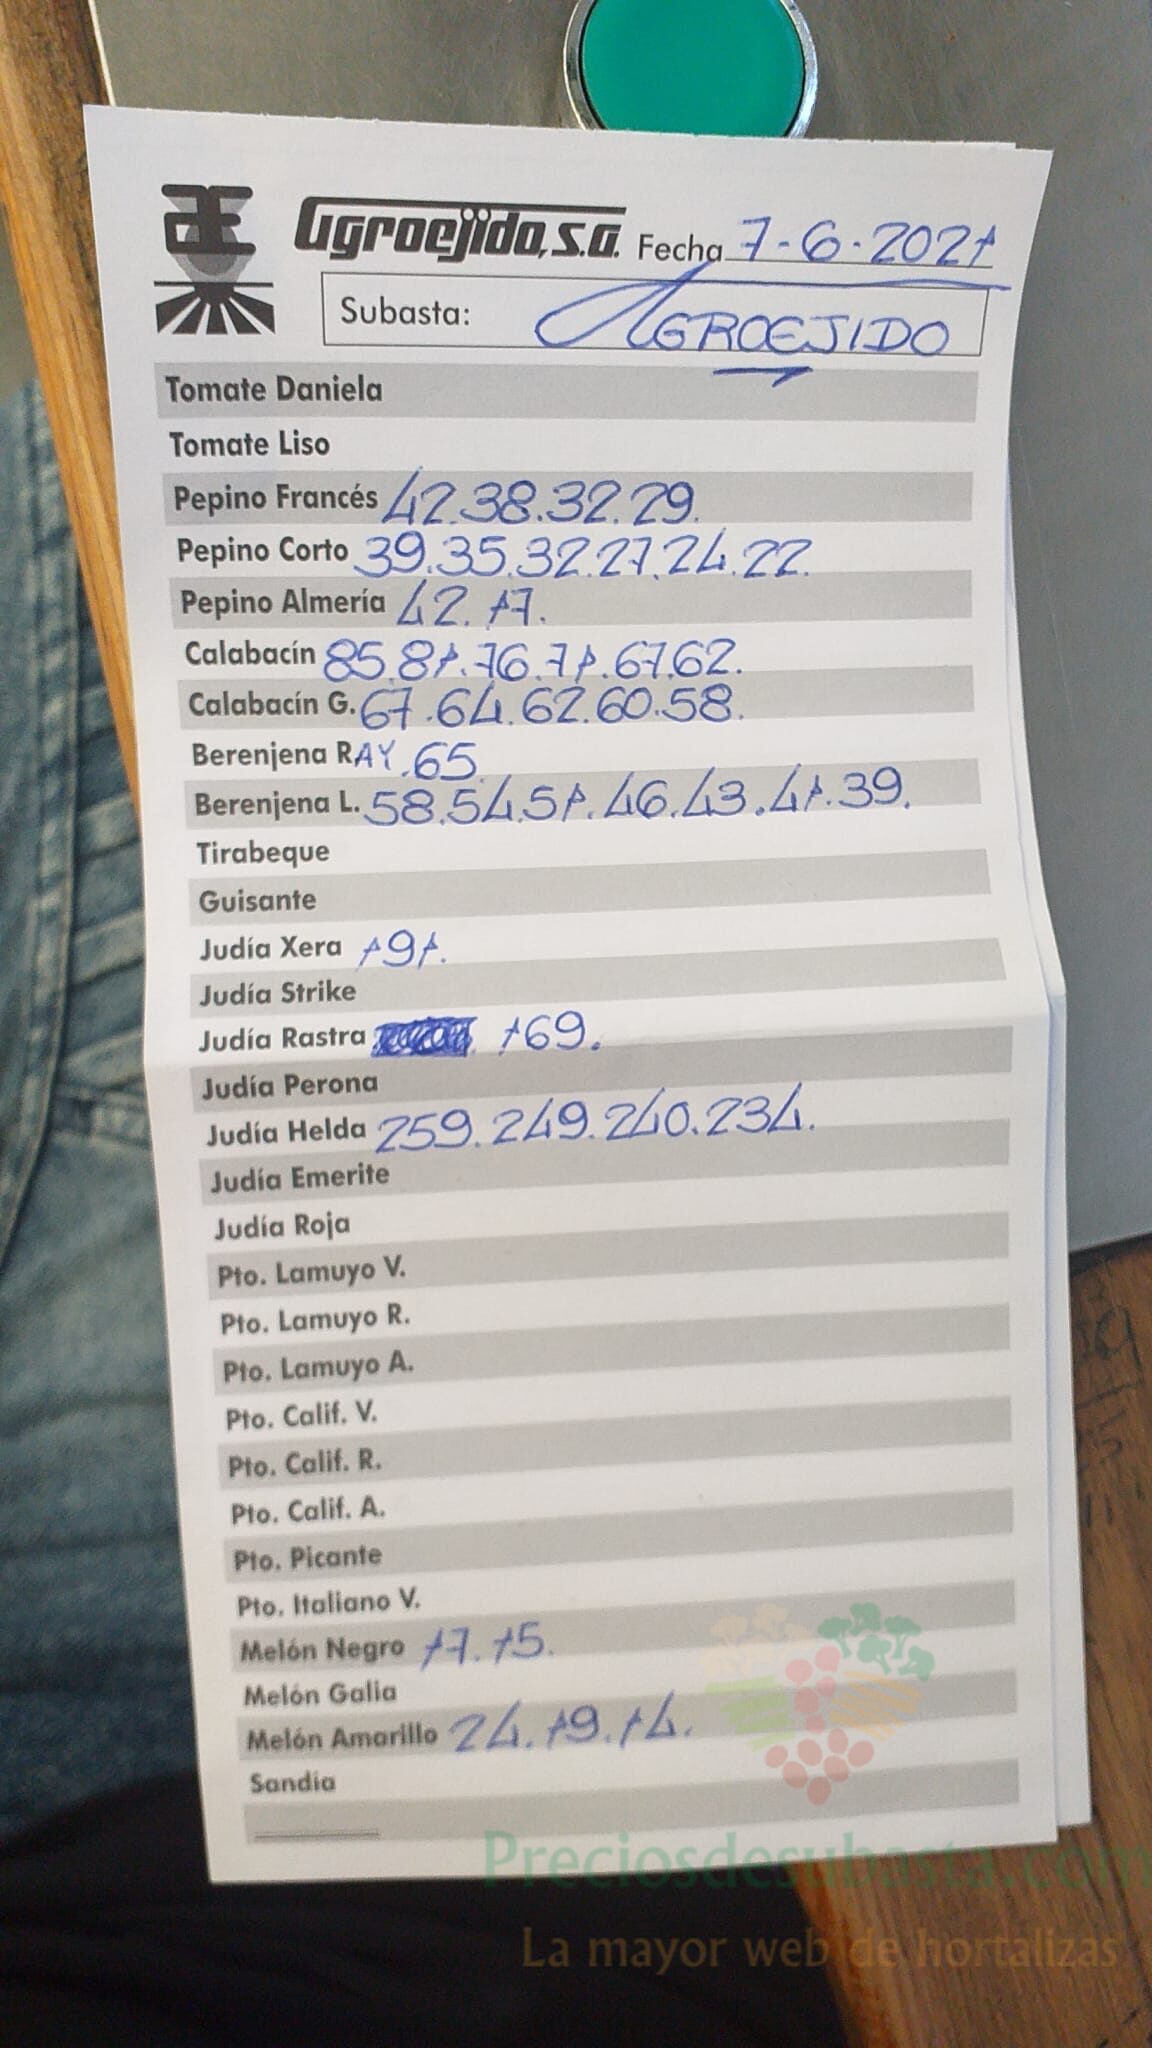 Agroejido, S.A. Fecha 7-6-2021
Subasta: AGROEJIDO
Tomate Daniela
Tomate Liso
Pepino Francés 42.38.32.29.
Pepino Corto 39.35.32.27.24.22.
Pepino Almería 42.17.
Calabacín 85.81.76.71.67.62.
Calabacín G. 67.64.62.60.58.
Berenjena RAY.65
Berenjena L. 58.54.51.46.43.41.39.
Tirabeque
Guisante
Judía Xera 191.
Judía Strike
Judía Rastra 169.
Judía Perona
Judía Helda 259.249.240.234.
Judía Emerite
Judía Roja
Pto. Lamuyo V.
Pto. Lamuyo R.
Pto. Lamuyo A.
Pto. Calif. V.
Pto. Calif. R.
Pto. Calif. A.
Pto. Picante
Pto. Italiano V.
Melón Negro 17.15.
Melón Galia
Melón Amarillo 24.19.14.
Sandía
Preciosdesubasta.com
La mayor web de hortalizas